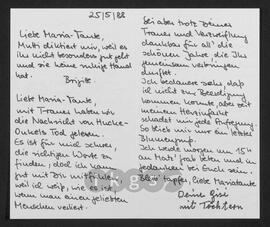 25/5/88
Liebe Maria-Tante,
Mutti diktiert mir, weil es
ihr nicht besonders gut geht
und sie keine ruhige Hand
hat.
Brigitte.
Liebe Maria-Tante,
mit Trauer haben wir
die Nachricht von Hucke-
Onkels Tod gelesen.
Es ist für mich schwer,
die richtigen Worte zu
finden, doch ich kann
gut mit Dir mitfühlen
weil ich weiß, wie es ist
wenn man einen geliebten
Menschen verliert.
Sei aber trotz Deiner
Trauer und Verzweiflung
dankbar für all' die
schönen Jahre die Ihr
gemeinsam verbringen
durftet.
Ich bedaure sehr, daß
ich nicht zur Beerdigung
kommen konnte, aber seit
meinem Herzinfarkt
schadet mir jede Aufregung.
So blieb mir nur ein letzter
Blumengruß.
Ich werde morgen um 15h
an Hans' Grab beten und in
Gedanken bei Euch sein.
Bleib' tapfer, liebe Mariatante
Deine Gisi
mit Töchtern